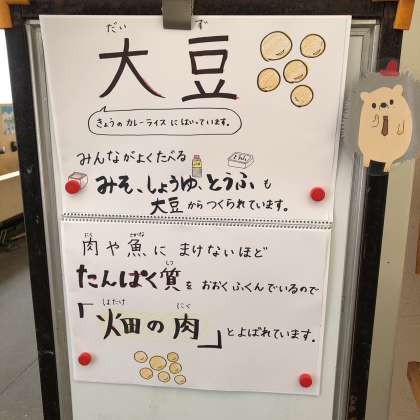 だいず
大豆
きょうのカレーライスにはいっています。
みんながよくたべる
みそ、しょうゆ、とうふも
大豆からつくられています。
にく さかな
肉や魚にまけないほど
しつ
たんぱく質をおおくふくんでいるので
はたけ にく
「畑の肉」とよばれています。